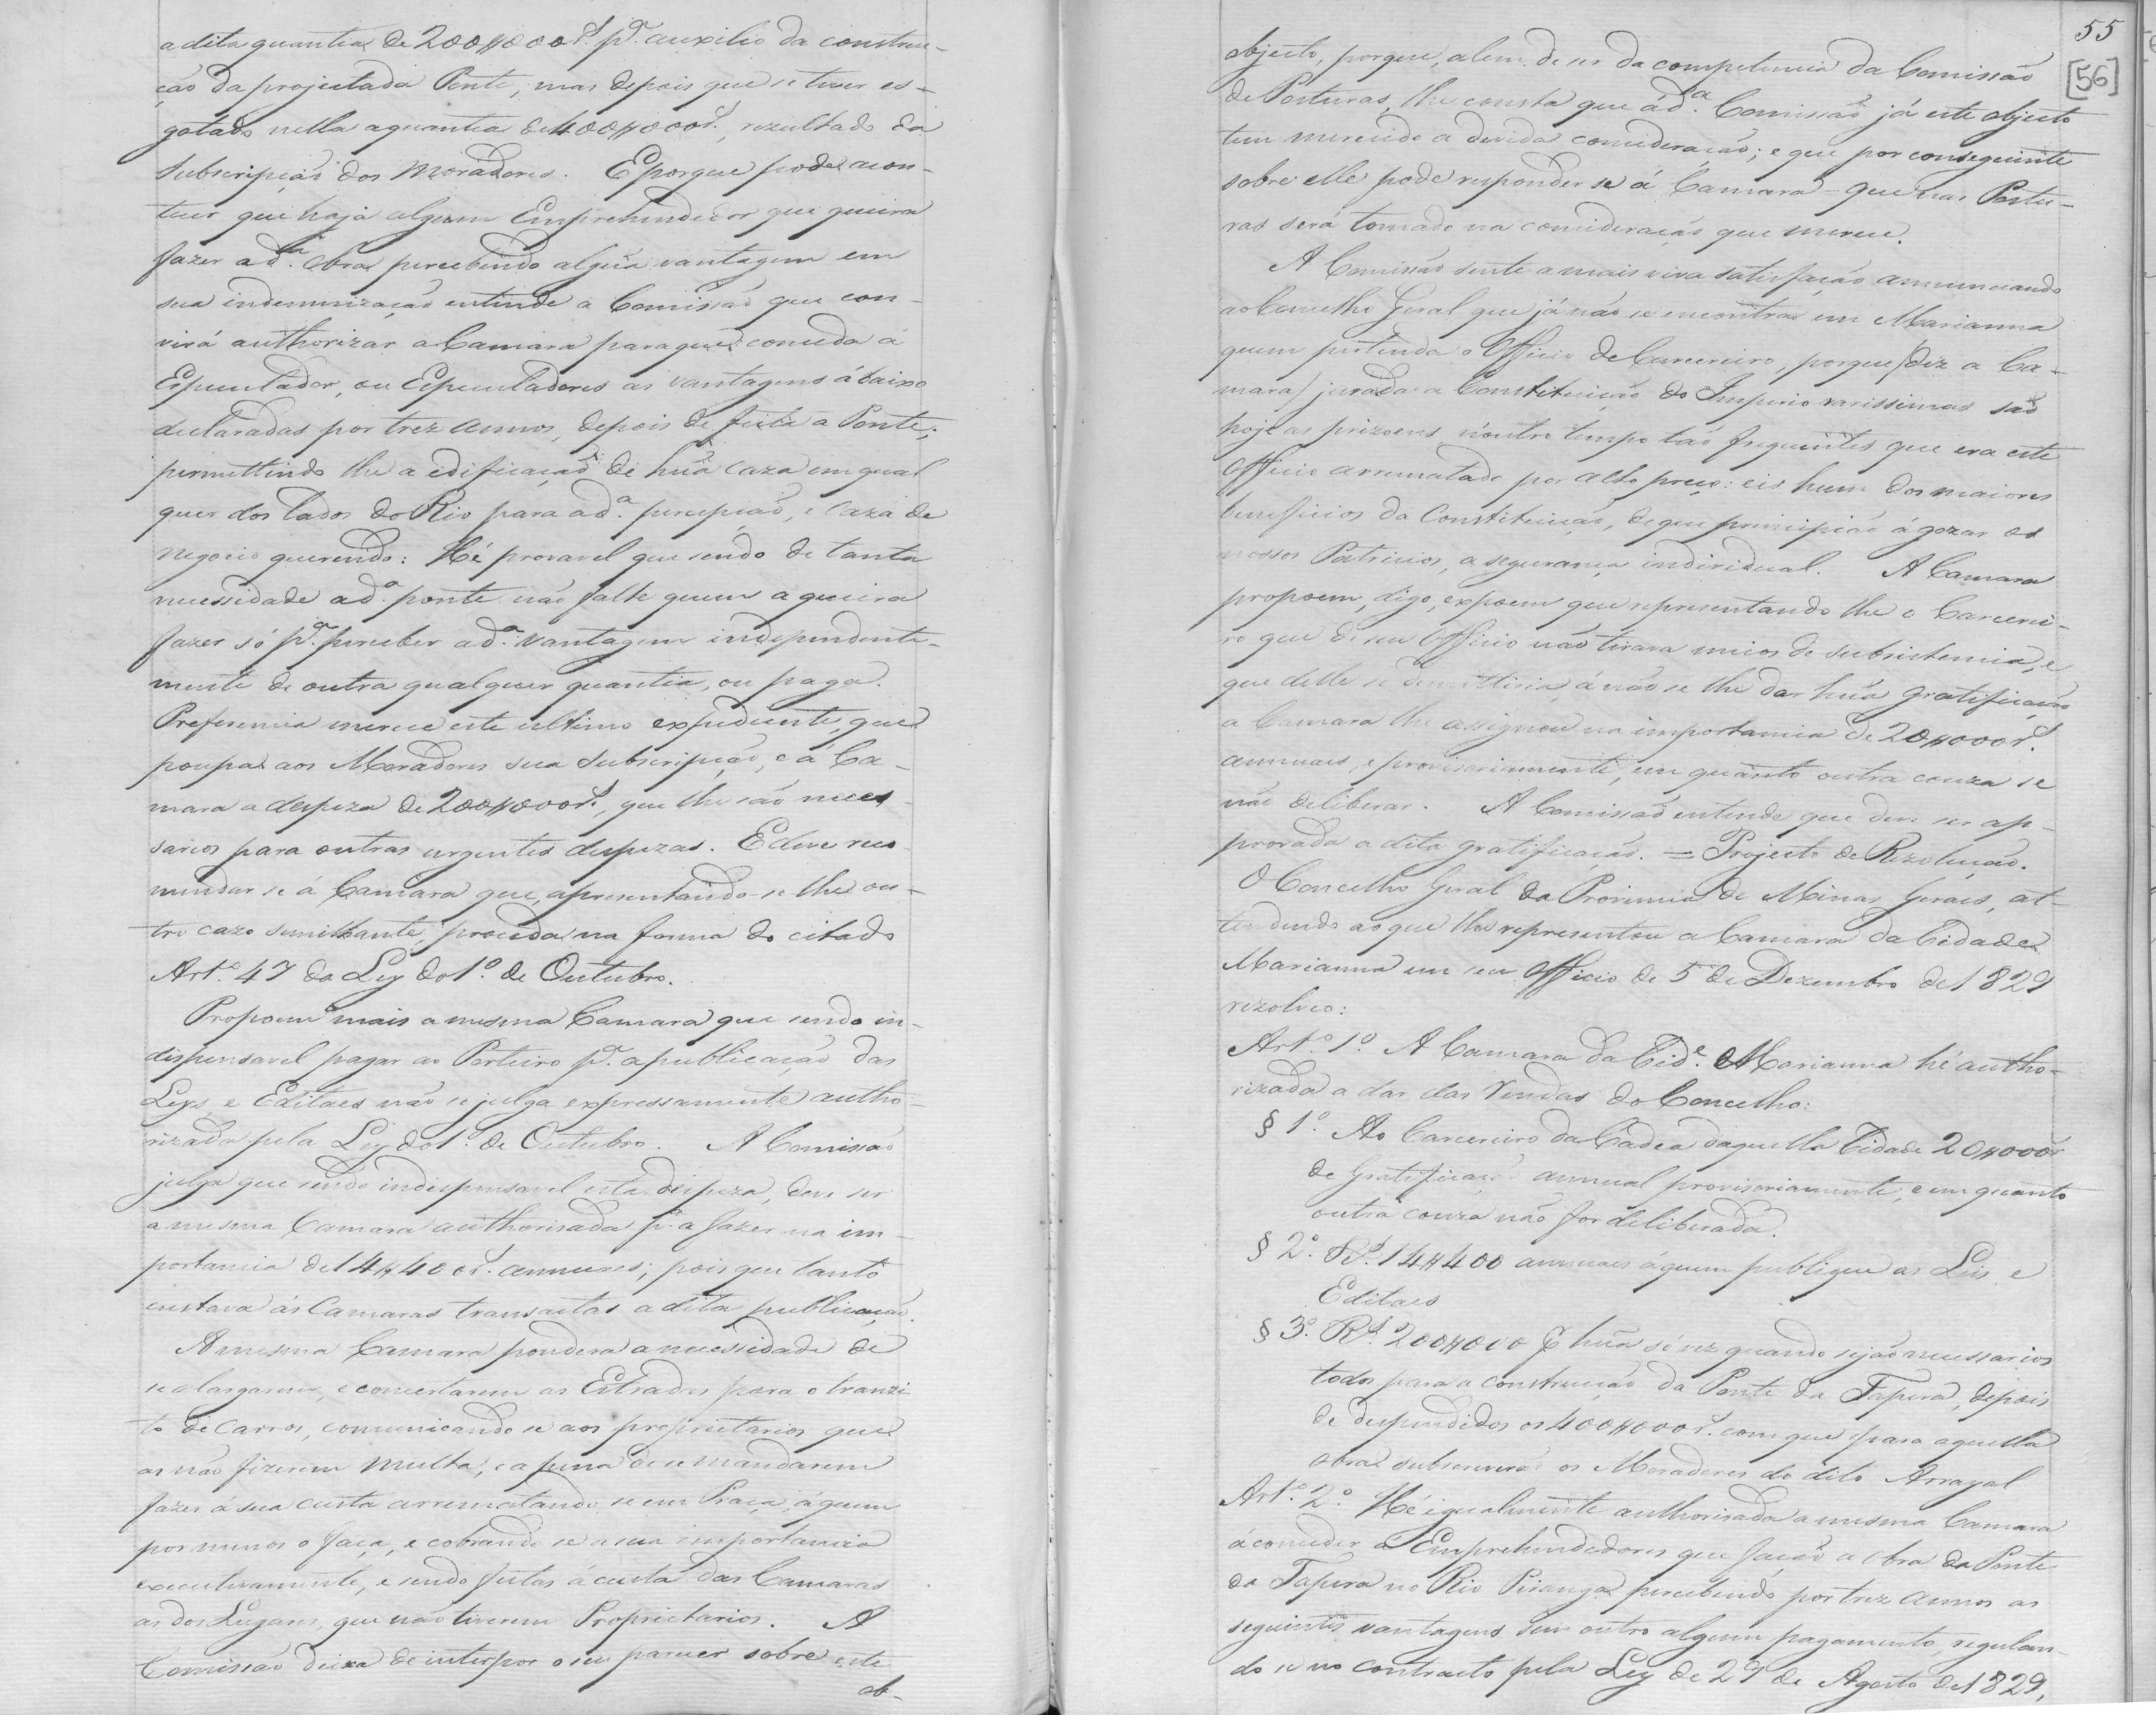 a dita quantia de 200$000 r.s p.a auxilio da construc-
ção da projectada Ponte, mas depois que se tiver es-
gotado nella a quantia de 400$000 r.s, rezultado da
Subscripção dos Moradores. E porque pode acon-
tecer que haja algum Emprehendedor que queira
fazer a d.a obra percebendo algũa vantagem em
sua indemnização entende a Comissão que con-
virá authorizar a Camara para que conceda á
Especulador, ou Especuladores as vantagens ábaixo
declaradas por trez annos, depois de feita a Ponte;
permittindo lhe a edificação de hũa caza em qual
quer dos lados do Rio para a d.a percepção, e caza de
negocio querendo: Hé provavel que sendo de tanta
necessidade a d.a ponte não falte quem a queira
fazer só p.a perceber a d.a vantagem independente-
mente de outra qualquer quantia, ou paga.
Preferencia merece este ultimo expediente, que
poupa aos Moradores sua Subscripção, e á Ca-
mara a despeza de 200$000 r.s, que lhe são neces
sarios para outras urgentes despezas. E deve reco
mendar se á Camara que, apresentando-se lhe ou-
tro cazo semilhante, proceda na forma do citado
Art.o 47 da Ley do 1.o de Outubro.
Propoem mais a mesma Camara que sendo in-
dispensavel pagar ao Porteiro p.a a publicação das
Leys, e Editaes não se julga expressamente autho-
rizada pela Ley do 1.o de Outubro. A Comissão
julga que sendo indispensavel esta despeza, deve ser
a mesma Camara authorisada p.a a fazer na im-
portancia de 14$400 r.s annuaes; pois que tanto
custava ás Camaras transactas a dita publicação.
A mesma Camara pondera a necessidade de
se alargarem, e concertarem as Estradas para o tranzi
to de carros, comunicando se aos proprietarios que
as não fizerem Multa, e a pena de se mandarem
fazer á sua custa arrematando se em Praça, á quem
por menos o faça, e cobrando se a sua importancia
executivamente, e sendo feitas á custa das Camaras
as dos Lugares, que não tiverem Proprietarios. A
Comissão deixa de interpor o seu parecer sobre este
ob-
55
[56]
objecto, porque, alem de ser da competencia da Comissão
de Posturas, lhe consta que á d.a Comissão já este objecto
tem merecido a devida consideração; e que por conseguinte
sobre elle pode responder se á Camara - que nas Postu-
ras será tomado na consideração que merece.
A Comissão sente a mais viva satisfação annunciando
ao Concelho Geral que já não se encontra em Marianna
quem pertenda o Officio de Carcereiro, porque (diz a Ca-
mara) jurada a Constituição do Imperio rarissimas são
hoje as prizoens n'outro tempo tão frequentes que era este
Officio arrematado por alto preço: eis hum dos maiores
beneficios da Constituição, de que principião á gozar os
nossos Patricios, a segurança individual. A Camara
propoem, digo, expoem que representando lhe o Carcerei-
ro que de seu Officio não tirava meios de subsistencia, e
que delle se demittiria, á não se lhe dar hũa gratificação
a Camara lhe assignou na importancia de 20$000 r.s
annuaes, e provisoriamente, em quanto outra couza se
não deliberar. A Comissão entende que deve ser ap-
provada a dita gratificação. = Projecto de Rezolução.
O Concelho Geral da Provincia de Minas Geraes, at-
tendendo ao que lhe representou a Camara da Cidade
Marianna em seu Officio de 5 de Dezembro de 1829
rezolveo:
Art.o 1.o A Camara da Cid.e Marianna hé autho-
rizada a dar das Rendas do Concelho:
§ 1.o Ao Carcereiro da Cadea daquella Cidade 20$000 r
de Gratificação annual provisoriamente, e em quanto
outra couza não for deliberada.
§ 2.o R.s 14$400 annuaes á quem publique as Leis e
Editaes
§ 3.o R.s 200$000 P hũa só vez quando sejão necessarios
todos para a construcção da Ponte da Tapera, depois
de despendidos os 400$000 r.s com que para aquella
obra subscreverão os Moradores do dito Arrayal
Art.o 2.o Hé igualmente authorisada a mesma Camara
á conceder a Emprehendedores que fação a obra da Ponte
da Tapera no Rio Piranga percebendo por trez annos as
seguintes vantagens sem outro algum pagamento, regulan-
do se no contracto pela Ley de 29 de Agosto de 1829,